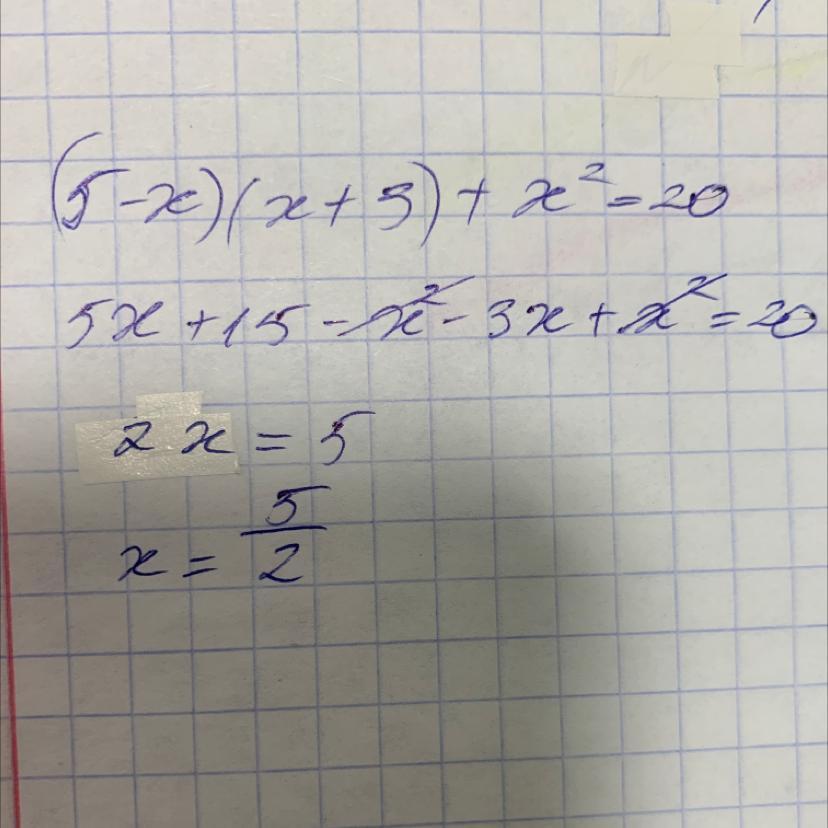 (5-x)(x+3)+x²=20
5x+15-x²-3x+x²=20
2x=5
x=5/2